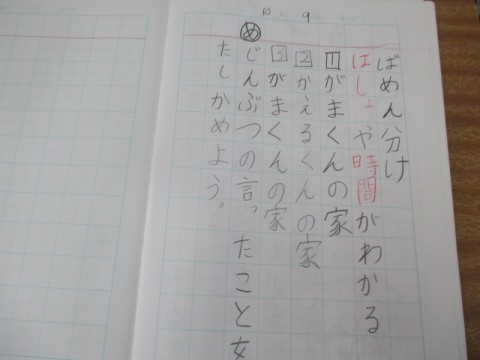 10 9
ばめん分け
ばしょや時間がわかる
1 がまくんの家
2 かえるくんの家
3 がまくんの家
め じんぶつの言ったことを
たしかめよう。